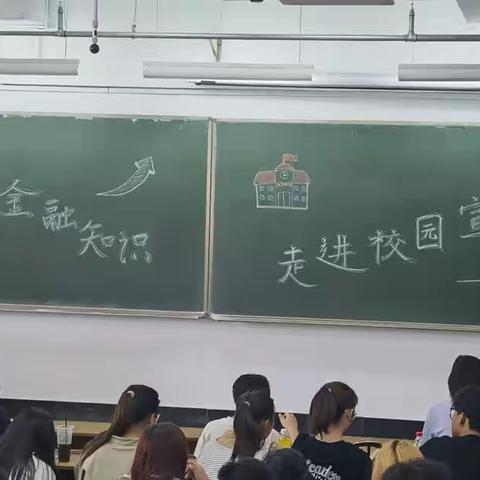 金融知识
走进校园宣